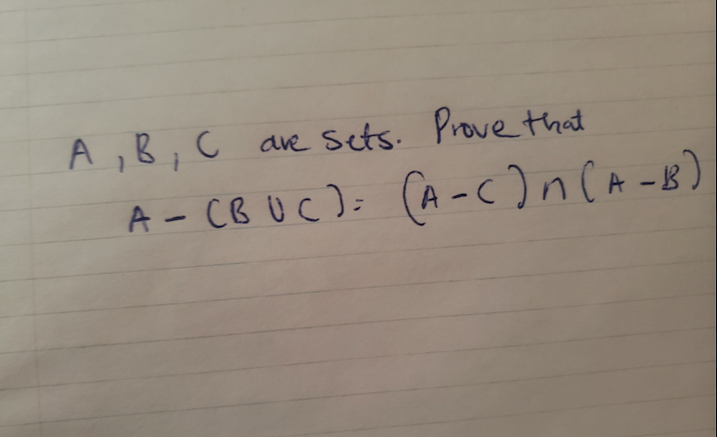 A, B, C are sets. Prove that
A - (B ∪ C) = (A - C) ∩ (A - B)